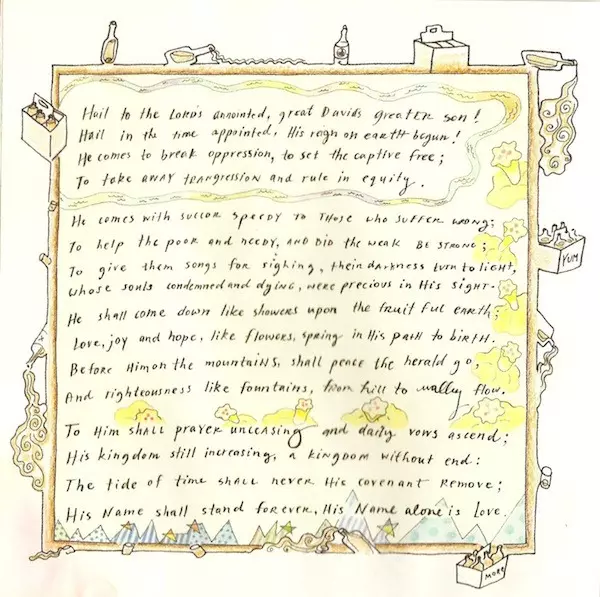 Hail to the LORD's annointed, great David's greater son!
Hail in the time appointed, His reign on earth begun!
He comes to break oppression, to set the captive free;
To take AWAY trangression and rule in equity.
He comes with succor speedy to those who suffer wrong;
To help the poor and needy, and bid the weak be strong;
To give them songs for sighing, their darkness turn to light,
whose souls condemned and dying, were precious in His sight.
He shall come down like showers upon the fruitful earth;
Love, joy and hope, like flowers, spring in His path to birth.
Before Him on the mountains, shall peace the herald go,
And righteousness like fountains, from hill to valley flow.
To Him shall prayer unceasing and daily vows ascend;
His kingdom still increasing, a kingdom without end:
The tide of time shall never His covenant remove;
His Name shall stand forever, His Name alone is Love.
YUM
MORE